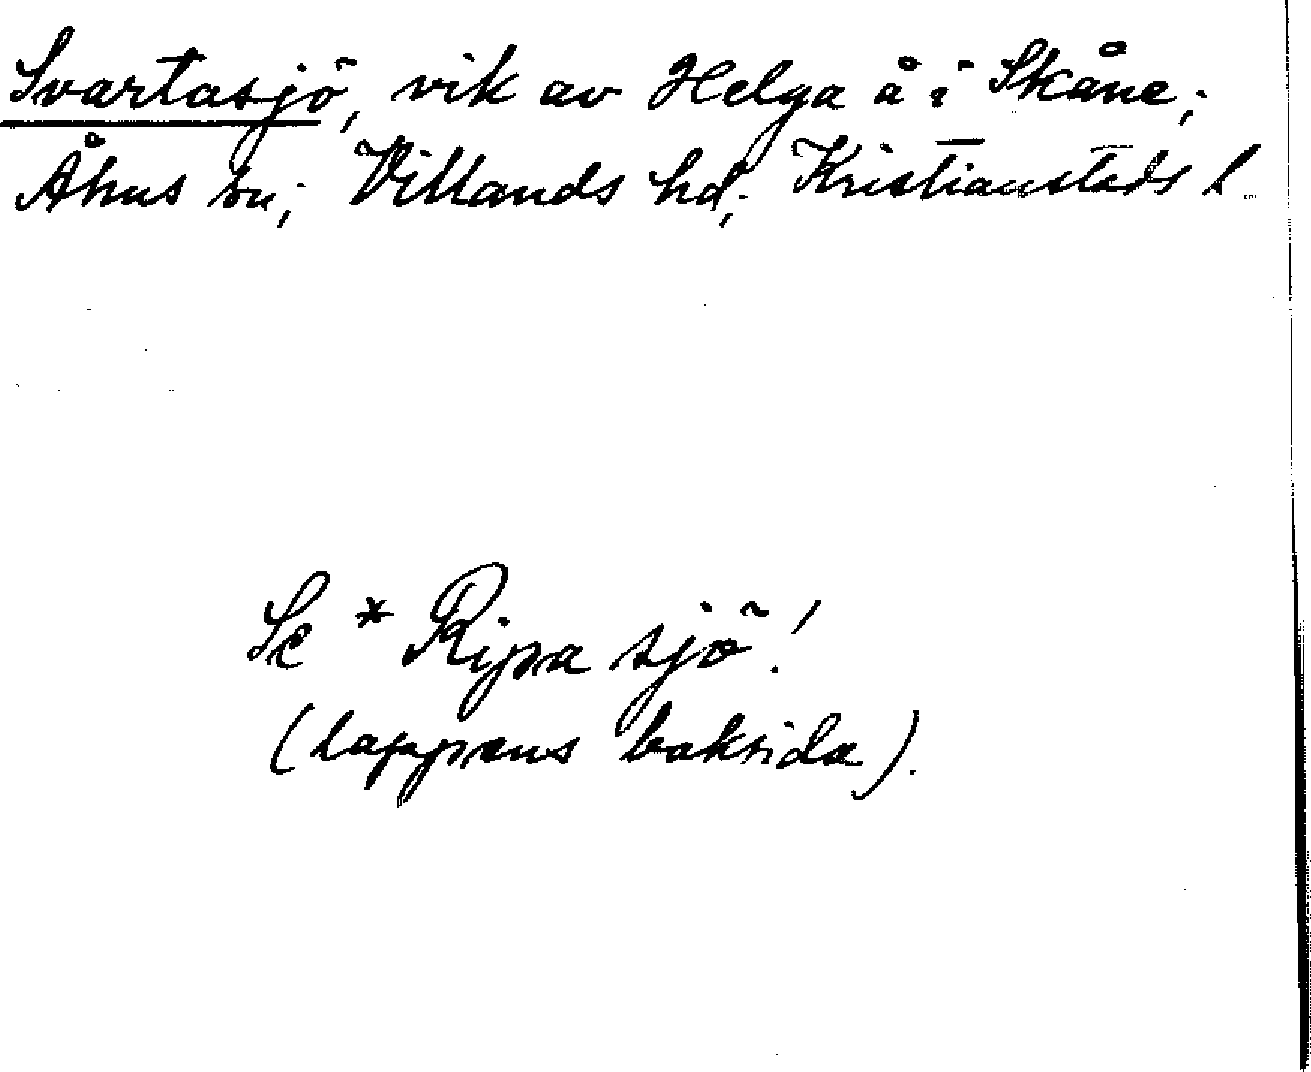 Svartasjö, vik av Helga å i Skåne;
Åhus sn; Villands hd; Kristianstads l.
Se * Ripa sjö!
(lappens baksida).